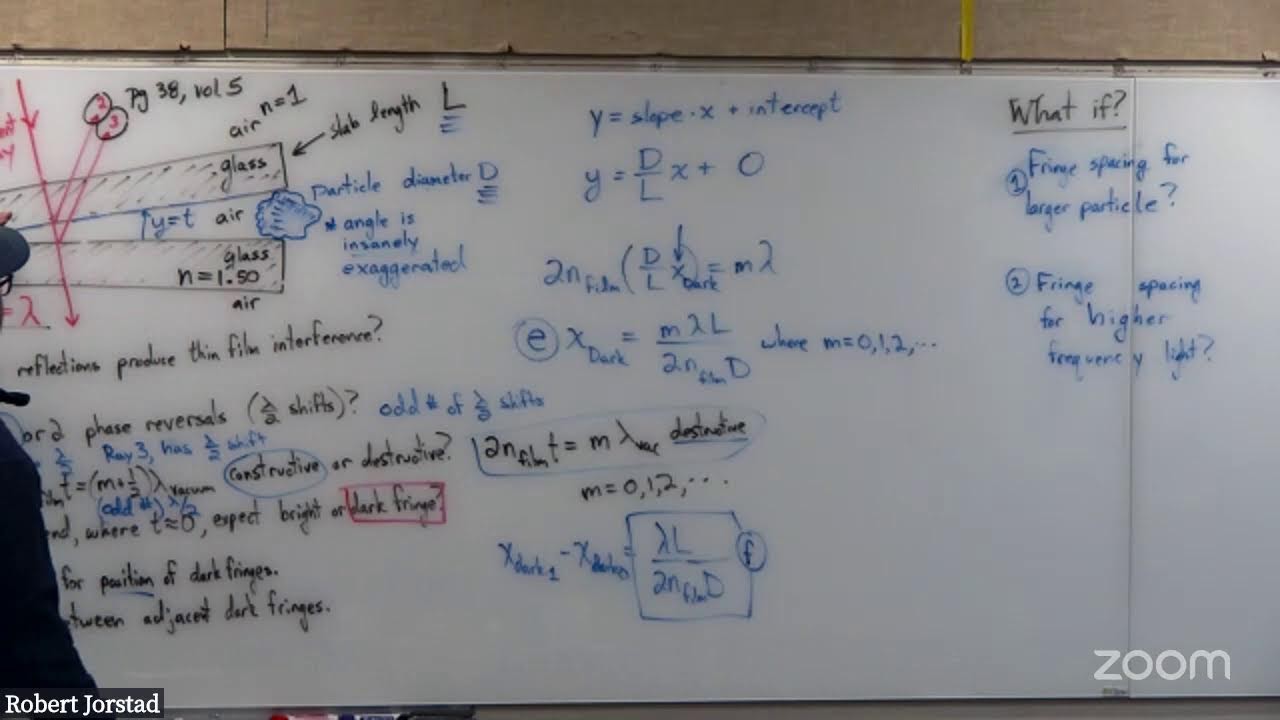 2
3
pg 38, vol. 5
air n=1
slab length L
glass
particle diameter D
y=t air
* angle is
insanely
exaggerated
glass
n=1.50
air
= λ
reflections produce thin film interference?
or 2 phase reversals (λ/2 shifts)? odd # of λ/2 shifts
Ray 3, has λ/2 shift
constructive or destructive?
t=(m+1/2)λvacuum
(odd #) λ/2
end, where t≈0, expect bright or dark fringe?
for position of dark fringes.
between adjacent dark fringes.
y = slope·x + intercept
y = D/L x + 0
2n film (D/L x Dark) = mλ
e x Dark = mλL / 2n film D where m=0,1,2,...
2n film t = m λ vac destructive
m=0,1,2,...
x dark1 - x dark0 = λL / 2n film D f
What if?
1 Fringe spacing for
larger particle?
2 Fringe spacing
for higher
frequency light?
zoom
Robert Jorstad